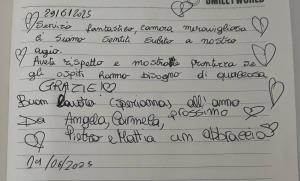 SMILEY WORLD
29/05/2025
Servizio fantastico, camera meravigliosa
ci siamo sentiti subito a nostro
agio.
Avete rispetto e mostrate prontezza se
gli ospiti hanno bisogno di qualcosa
GRAZIE!
Buon lavoro (speriamo) all'anno
prossimo
Da Angela, Carmela,
Pietro e Mattia un abbraccio
01/06/2025